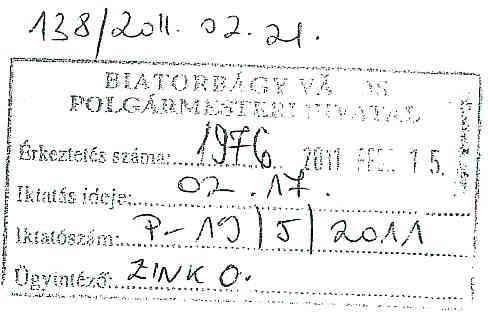 138/2011. 02. 21.
BIATORBÁGY VÁ OS
POLGÁRMESTERI HIVATAL
Érkeztetés száma: 1976 2011 FEB. 15.
Iktatás ideje: 02.17.
Iktatószám: P-19/5/2011
Ügyintéző: ZINK O.